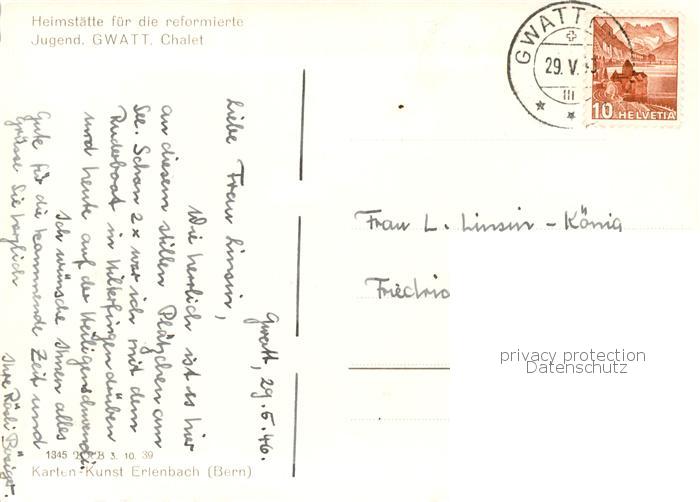 Heimstätte für die reformierte
Jugend. GWATT. Chalet
GWATT
29. V.
III
10 HELVETIA
Gwatt, 29.5.46.
Liebe Frau Linsin,
Wie herrlich ist es hier
an diesem stillen Plätzchen am
See. Schon 2x war ich mit dem
Ruderboot in Hilterfingen drüben
und heute auf der Heiligenschwendi.
Ich wünsche Ihnen alles
Gute für die kommende Zeit und
grüsse Sie herzlich
Ihre
Frau L. Linsin - König
Friedric
privacy protection
Datenschutz
1345 B 3. 10. 39
Karten-Kunst Erlenbach (Bern)